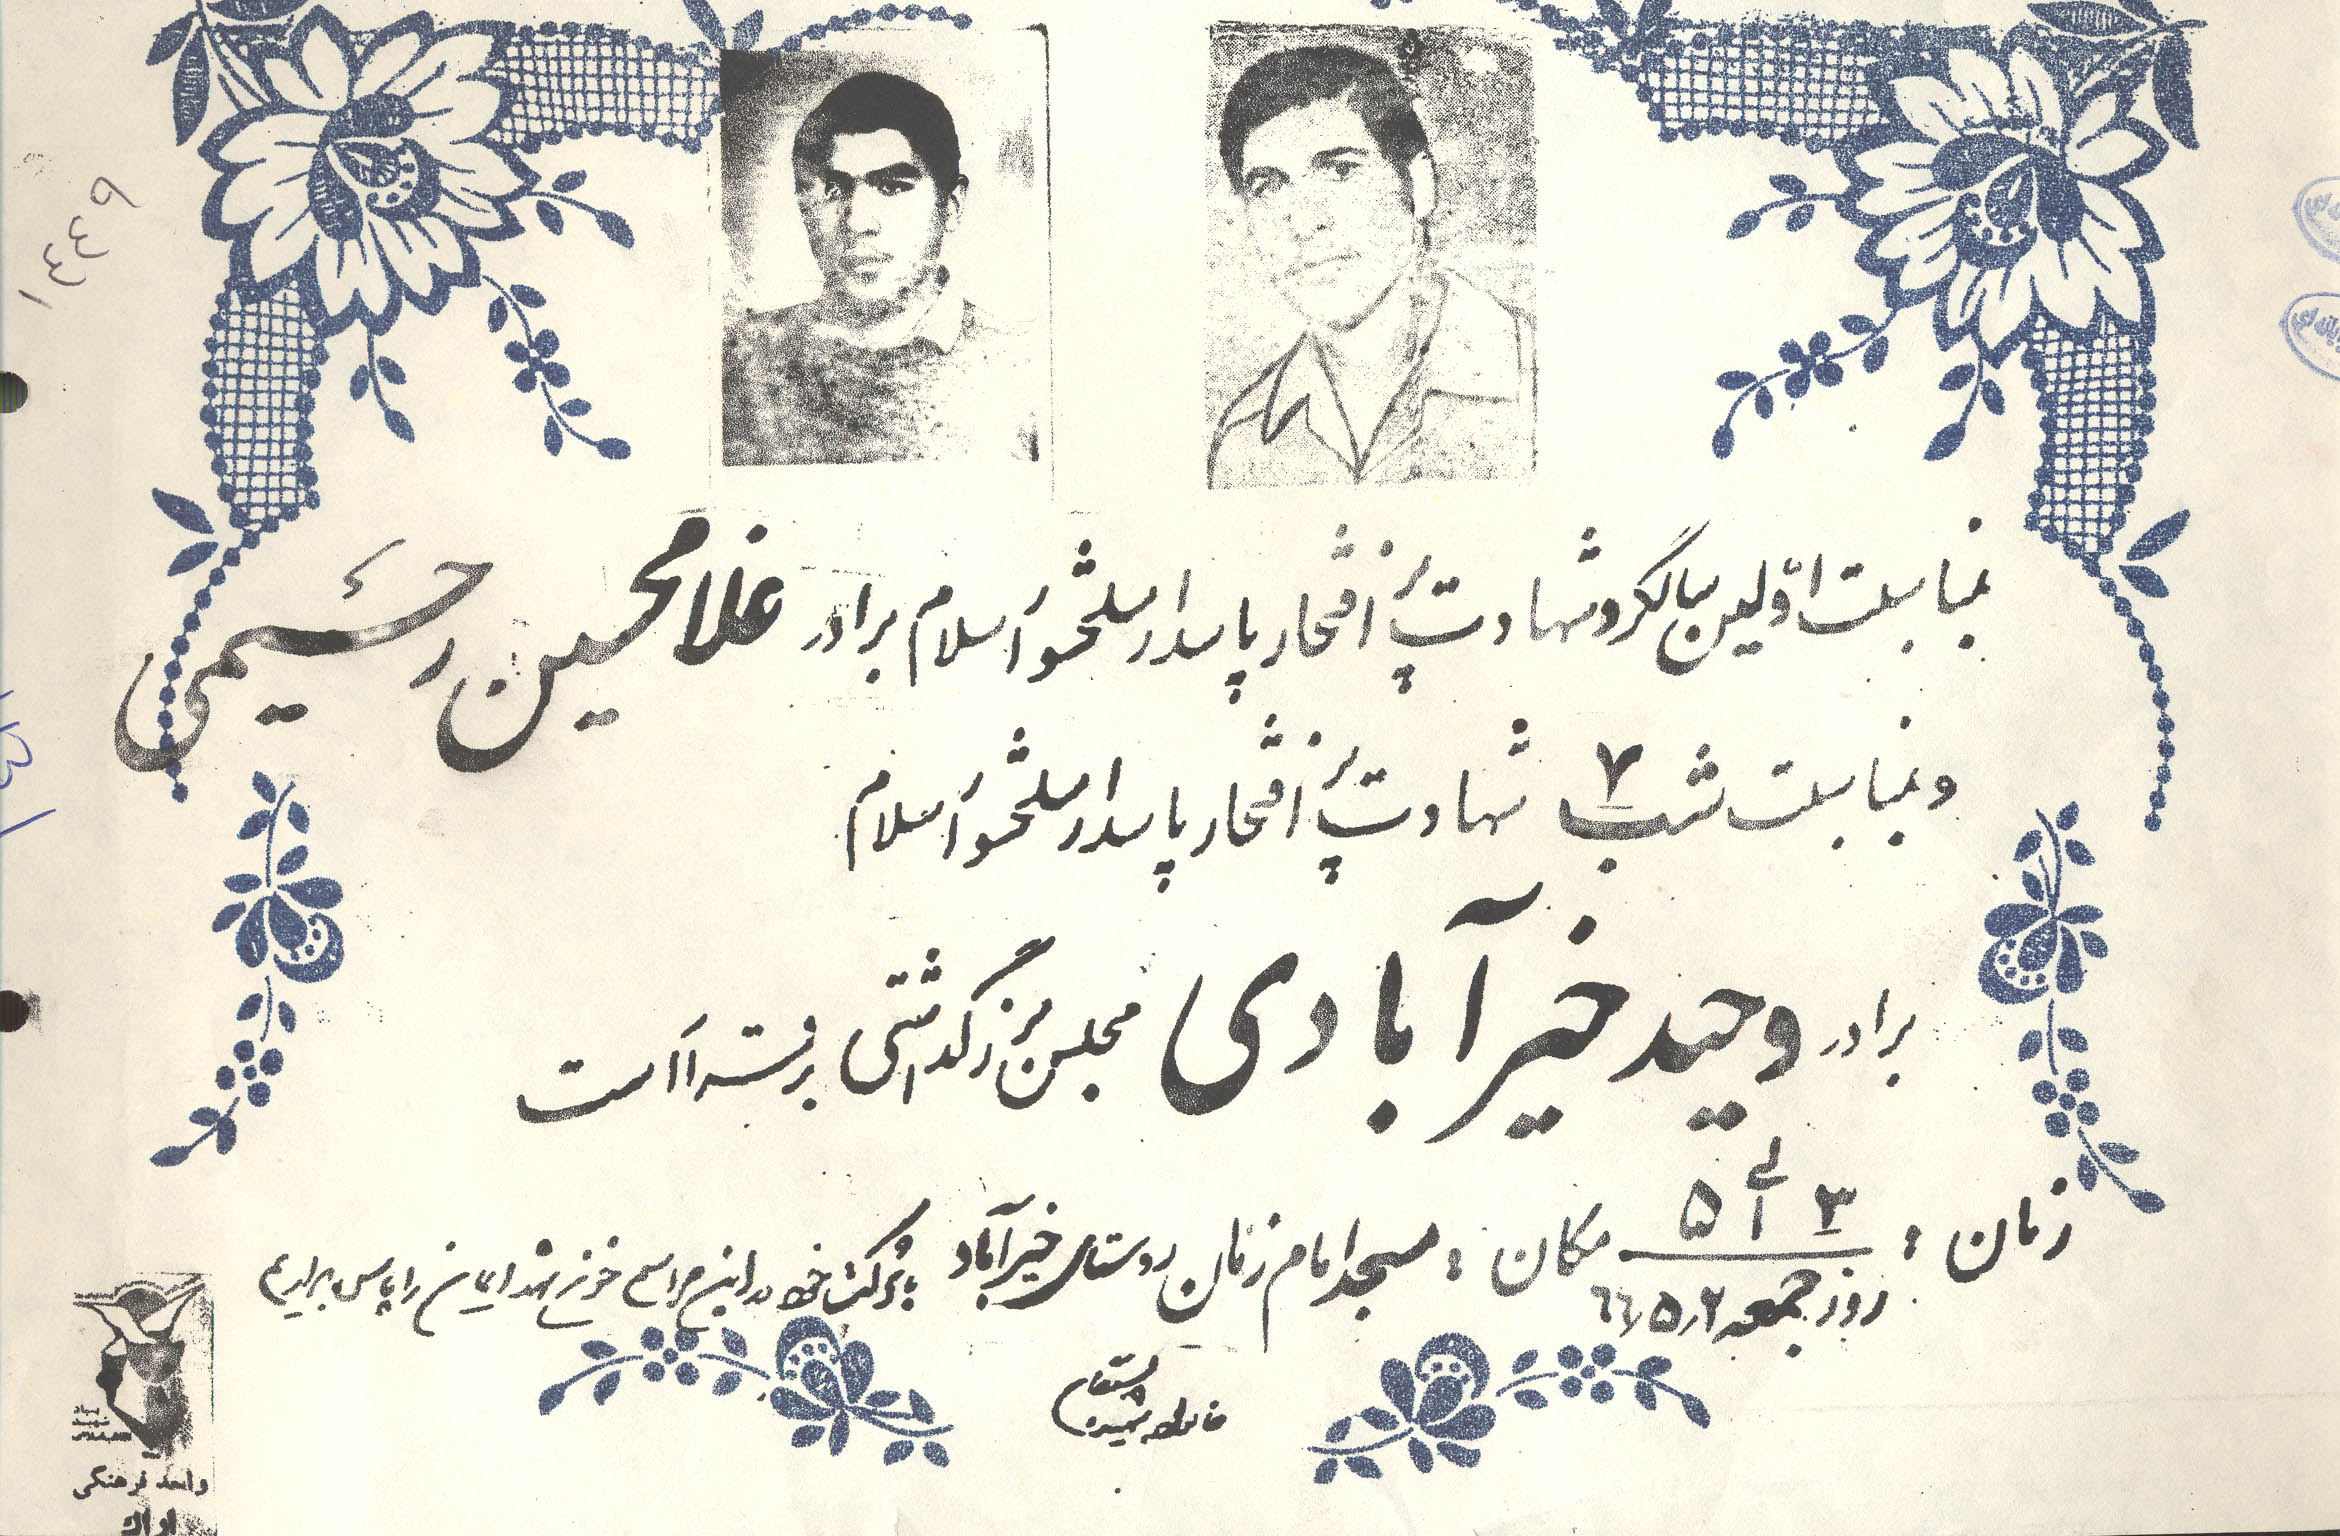 بمناسبت اوّلین سالگرد شهادت پر افتخار پاسدار سلحشور اسلام برادر غلامحسین رحیمی
و بمناسبت شب ۷ شهادت پر افتخار پاسدار سلحشور اسلام
برادر وحید خیرآبادی مجلس بزرگداشتی برقرار است
زمان : ۳ الی ۵ مکان : مسجد امام زمان روستای خیرآباد با شرکت خود در این مراسم خون شهدایمان را پاس بداریم
روز جمعه ۶۶/۵/۲
خانواده شهیدان
بنیاد
شهید
واحد فرهنگی
اراک